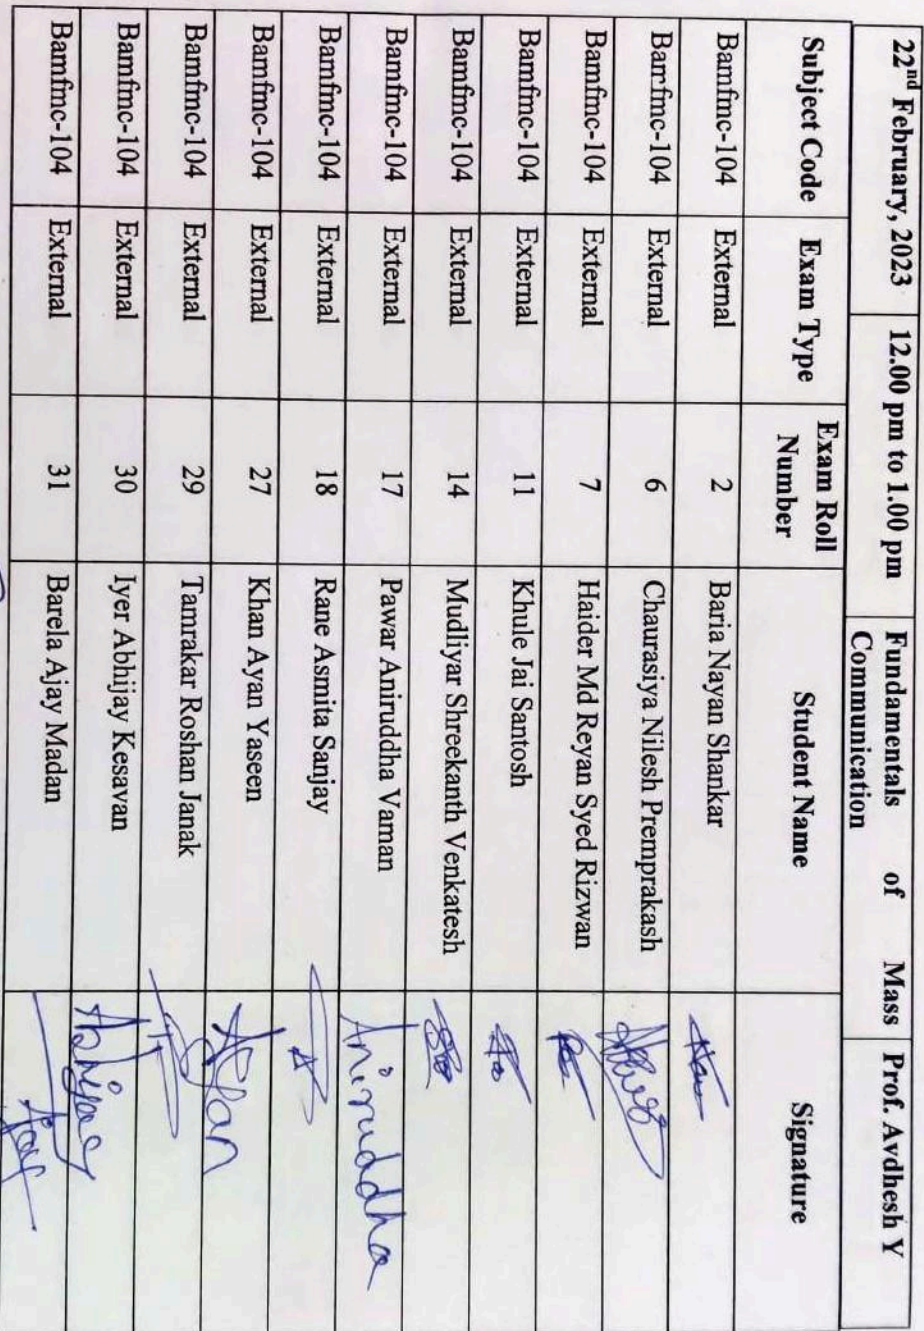 22nd February, 2023 12.00 pm to 1.00 pm Fundamentals of Mass Communication Prof. Avdhesh Y
Subject Code Exam Type Exam Roll Number Student Name Signature
Bamfmc-104 External 2 Baria Nayan Shankar
Bamfmc-104 External 6 Chaurasiya Nilesh Premprakash
Bamfmc-104 External 7 Haider Md Reyan Syed Rizwan
Bamfmc-104 External 11 Khule Jai Santosh
Bamfmc-104 External 14 Mudliyar Shreekanth Venkatesh
Bamfmc-104 External 17 Pawar Aniruddha Vaman Aniruddha
Bamfmc-104 External 18 Rane Asmita Sanjay
Bamfmc-104 External 27 Khan Ayan Yaseen Ayan
Bamfmc-104 External 29 Tamrakar Roshan Janak
Bamfmc-104 External 30 Iyer Abhijay Kesavan Abhijay
Bamfmc-104 External 31 Barela Ajay Madan